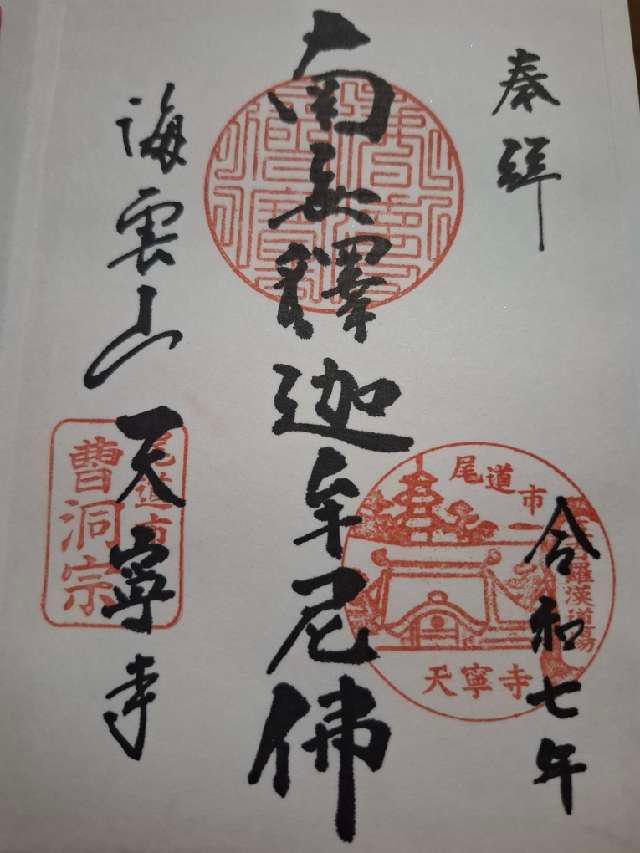 奉拝
令和七年
南無釋迦牟尼佛
海雲山天寧寺
尾道市
羅漢道場
天寧寺
尾道市
曹洞宗